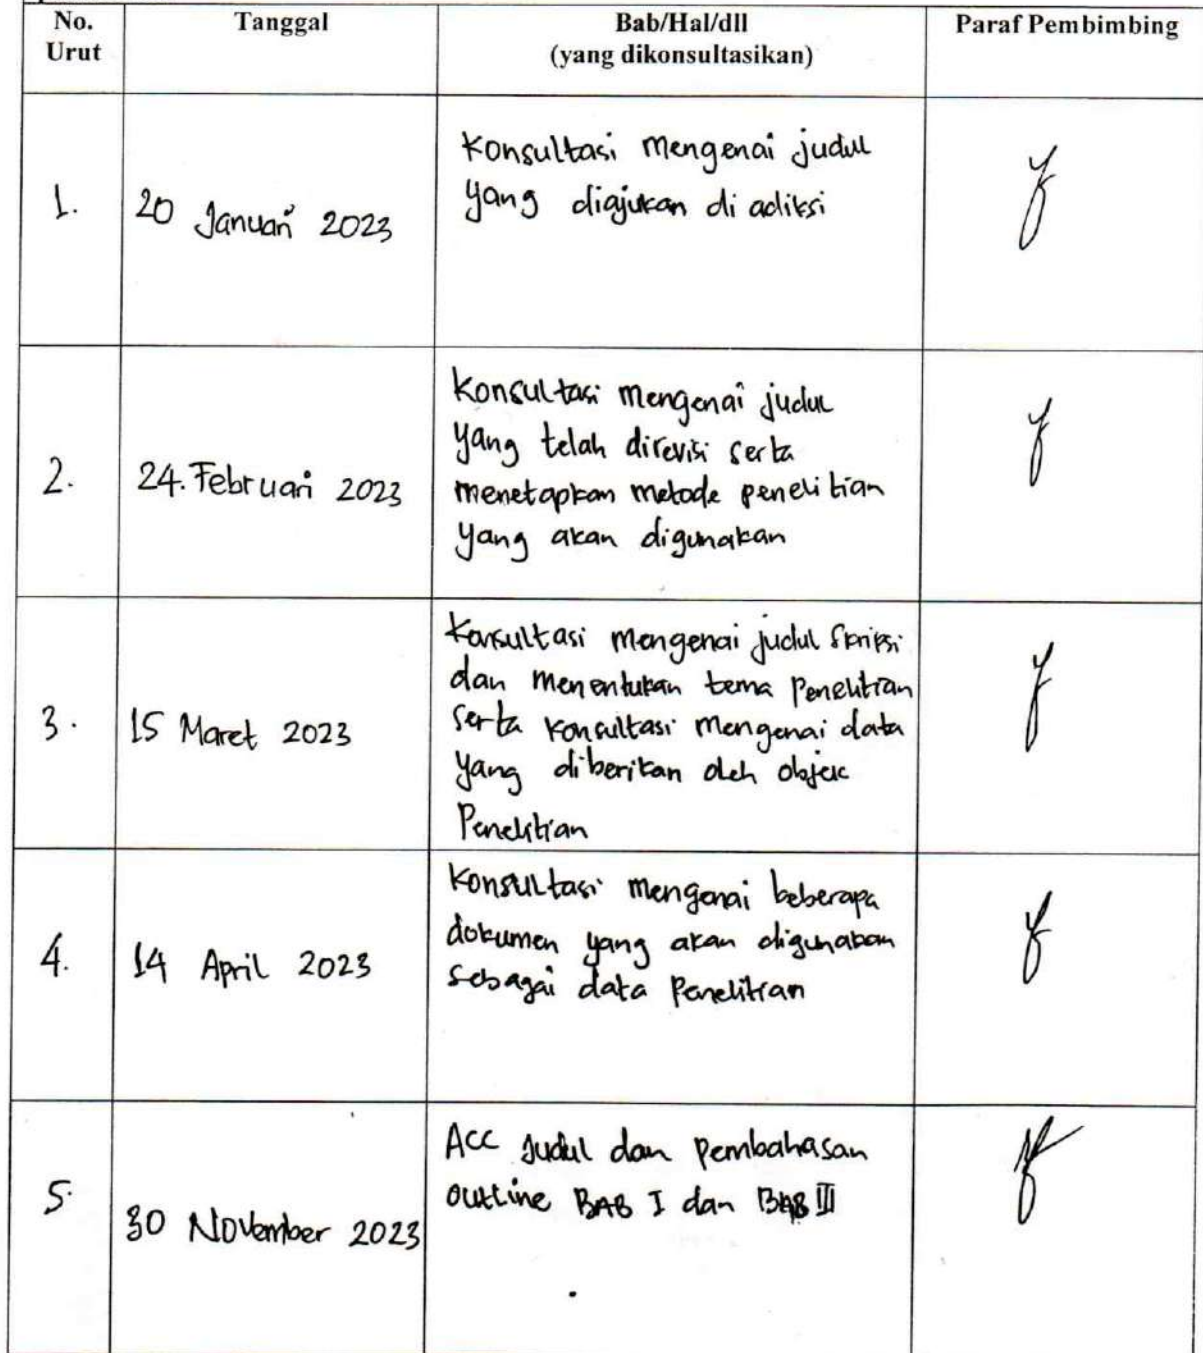 No. Urut
Tanggal
Bab/Hal/dll
(yang dikonsultasikan)
Paraf Pembimbing
1.
20 Januari 2023
Konsultasi mengenai judul
yang diajukan di adiksi
2.
24. Februari 2023
Konsultasi mengenai judul
yang telah direvisi serta
menetapkan metode penelitian
yang akan digunakan
3.
15 Maret 2023
Konsultasi mengenai judul skripsi
dan menentukan tema Penelitian
serta konsultasi mengenai data
yang diberikan oleh objek
Penelitian
4.
14 April 2023
Konsultasi mengenai beberapa
dokumen yang akan digunakan
sebagai data Penelitian
5.
30 November 2023
ACC Judul dan Pembahasan
outline BAB I dan BAB